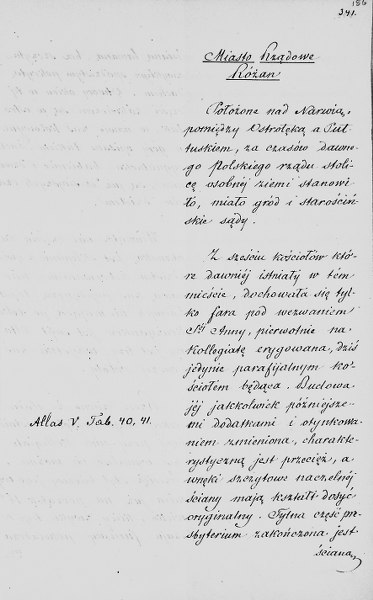 156
341.
Miasto Rządowe
Różan
Położone nad Narwią,
pomiędzy Ostrołęką a Puł-
tuskiem, za czasów dawne-
go Polskiego rządu stoli-
cę osobnéj ziemi stanowi-
ło, miało gród i starościń-
skie sądy.
Z sześciu kościołów któ-
re dawniéj istniały w tém
mieście, dochowała się tyl-
ko fara pod wezwaniem
Sej Anny, pierwotnie na
kollegiatę erygowana, dziś
jedynie parafijalnym ko-
ściołem będąca. Budowa
jéj jakkolwiek późniejsze-
mi dodatkami i otynkowa-
niem zmieniona, charakte-
rystyczną jest przecież, a
wnęki szczytowe naczelnéj
ściany mają kształt dosyć
oryginalny. Tylna część pre-
sbyterium zakończona jest
ścianą
Atlas V, Tab. 40, 41.